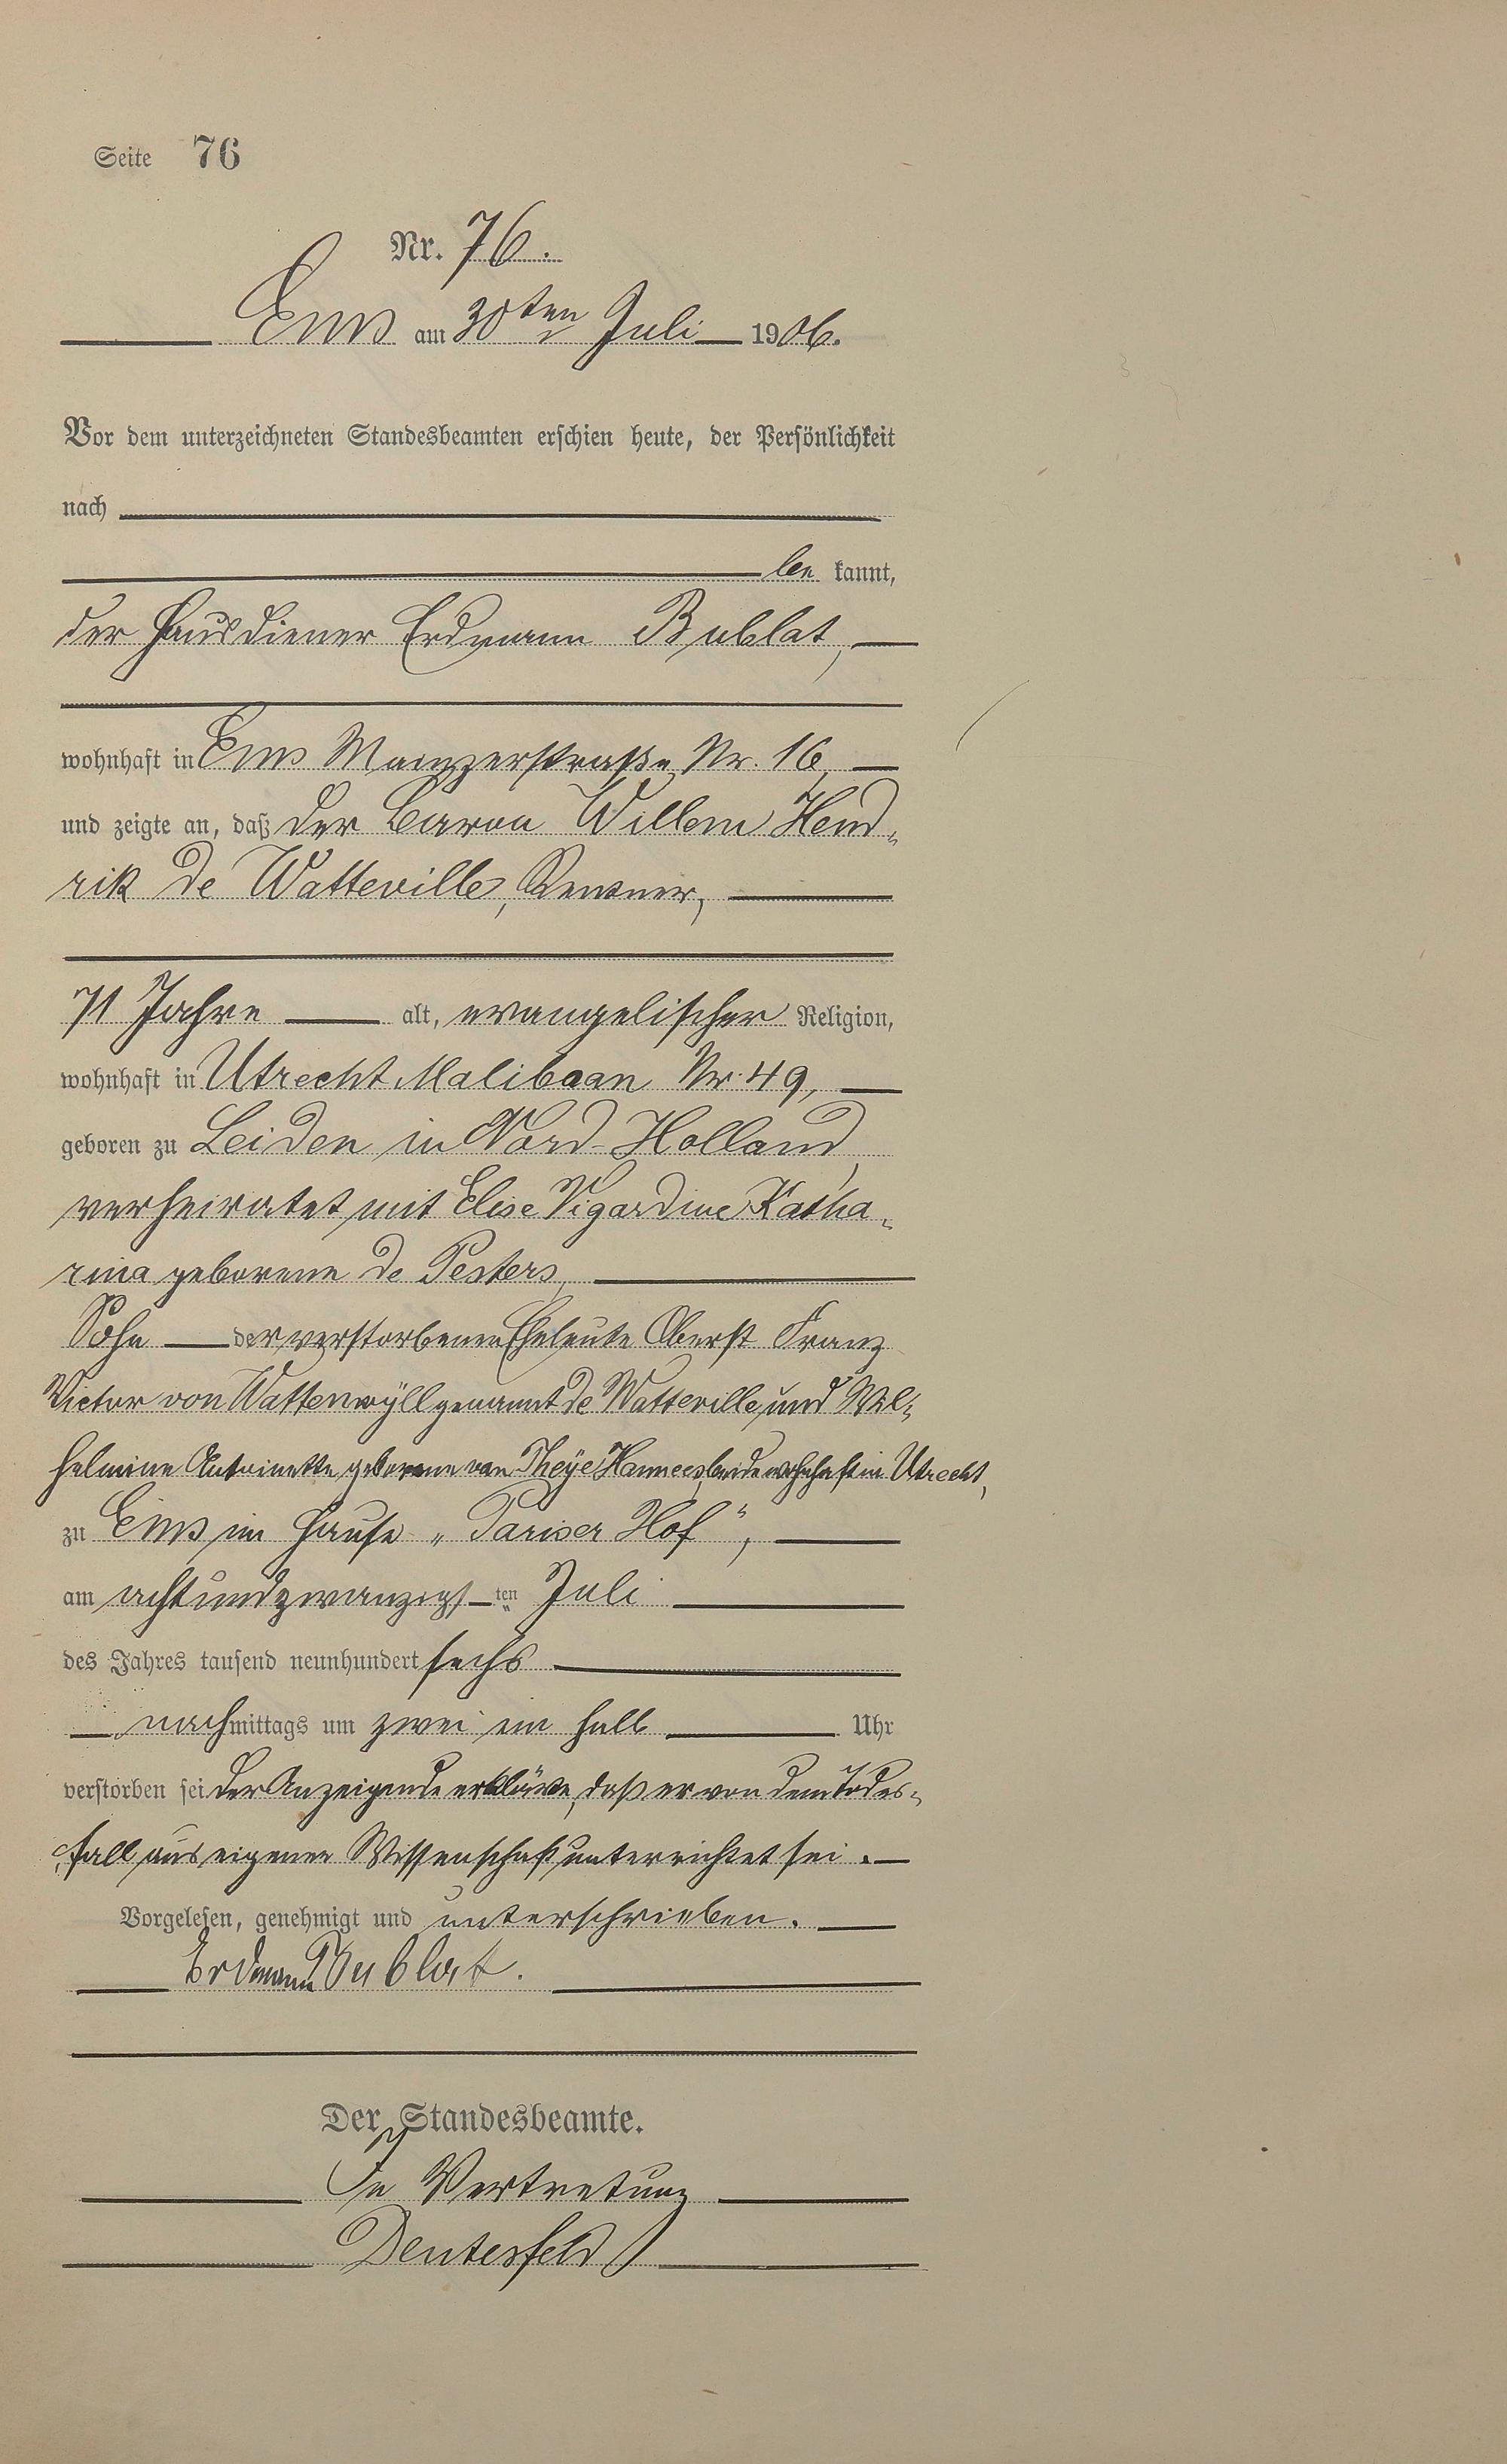 Seite 76
Nr. 76.
Ems am 30ten Juli 1906.
Vor dem unterzeichneten Standesbeamten erschien heute, der Persönlichkeit
nach
be kannt,
der Hausdiener Erdmann Bublat,
wohnhaft in Ems Mainzerstraße Nr. 16,
und zeigte an, daß der Baron Willem Hend-
rik de Watteville, Rentner,
71 Jahre alt, evangelischer Religion,
wohnhaft in Utrecht Malibaan Nr. 49,
geboren zu Leiden in Nord-Holland,
verheiratet mit Elise Vigardine Katha-
rina geborene de Pesters,
Sohn der verstorbenen Eheleute Oberst Franz
Victor von Wattenwyll genannt de Watteville und Wil-
helmine Antoinette geborene van Theye Hannees, beide wohnhaft in Utrecht,
zu Ems im Hause „Pariser Hof",
am achtundzwanzigsten Juli
des Jahres tausend neunhundert sechs
nachmittags um zwei ein halb Uhr
verstorben sei. Der Anzeigende erklärte, daß er von dem Todes-
fall aus eigener Wissenschaft unterrichtet sei.
Vorgelesen, genehmigt und unterschrieben.
Erdmann Bublat.
Der Standesbeamte.
In Vertretung
Deutesfeld